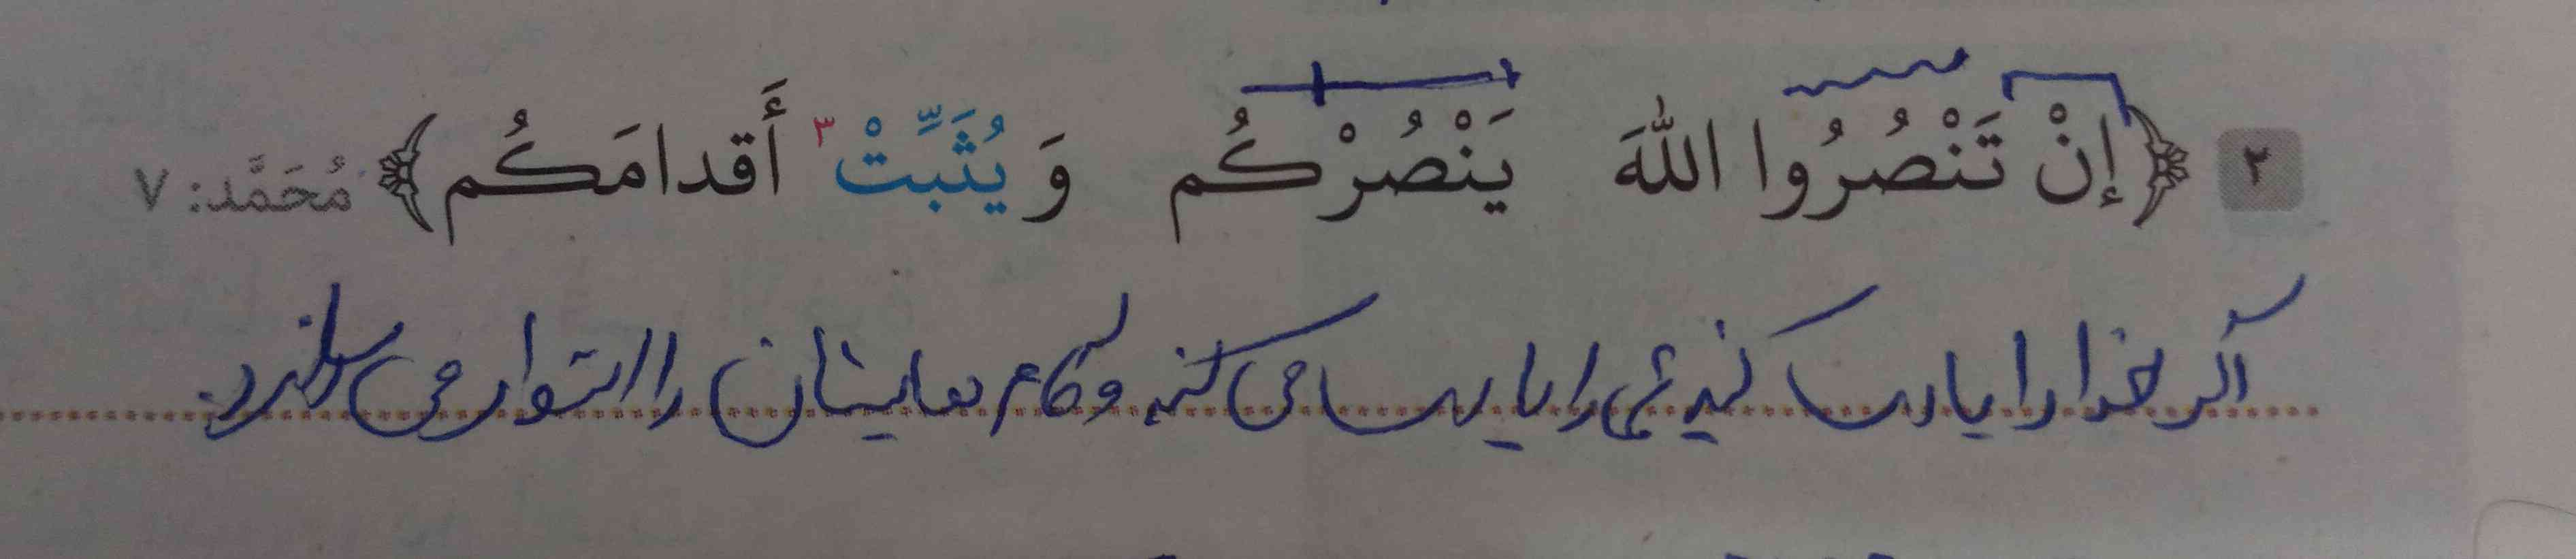 ٢ ﴿إنْ تَنْصُرُوا اللّٰهَ يَنْصُرْكُم وَ يُثَبِّتْ٣ أَقدامَكُم﴾ مُحَمَّد: ٧
اگر خدا را یاری کنید شما را یاری می کند و گام هایتان را استوار می سازد.